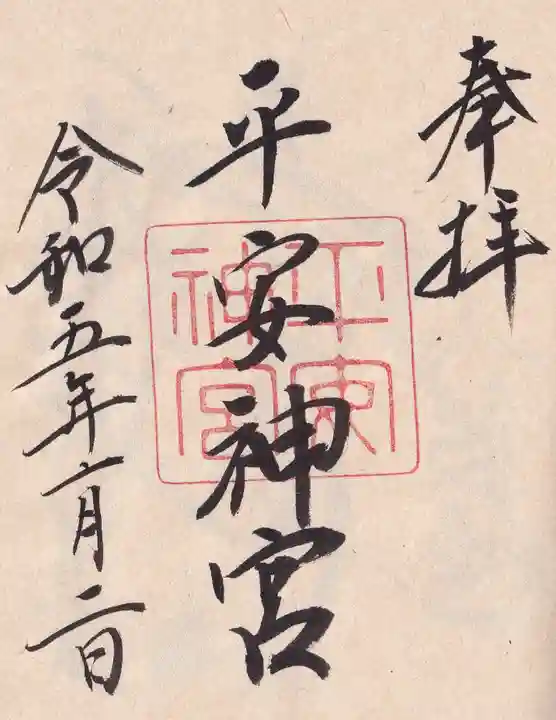 奉拝
平安神宮
平安神宮
令和五年六月二日